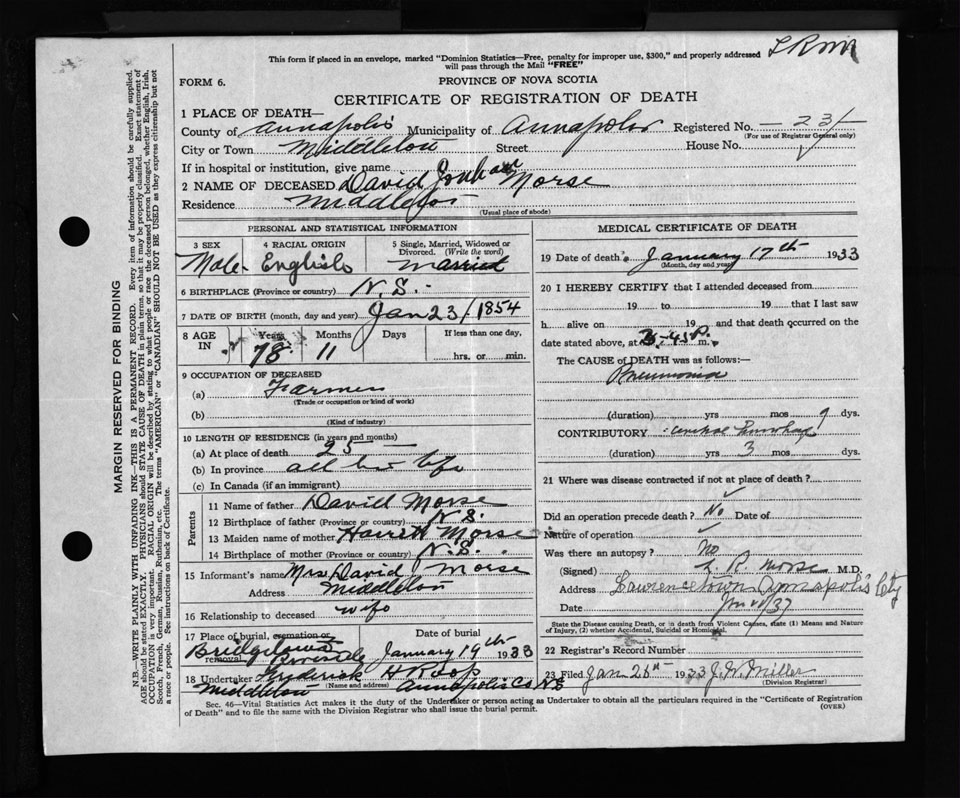 L R M
This form if placed in an envelope, marked "Dominion Statistics—Free, penalty for improper use, $300," and properly addressed
will pass through the Mail "FREE"
FORM 6.
PROVINCE OF NOVA SCOTIA
CERTIFICATE OF REGISTRATION OF DEATH
1 PLACE OF DEATH—
County of Annapolis Municipality of Annapolis Registered No. —23/—
(For use of Registrar General only)
City or Town Middleton Street House No.
If in hospital or institution, give name
2 NAME OF DECEASED David Morse
Residence Middleton
(Usual place of abode)
PERSONAL AND STATISTICAL INFORMATION
3 SEX 4 RACIAL ORIGIN 5 Single, Married, Widowed or Divorced. (Write the word)
Male English Married
6 BIRTHPLACE (Province or country) N.S.
7 DATE OF BIRTH (month, day and year) Jan 23/1854
8 AGE IN Years Months Days If less than one day,
78 11 hrs. or min.
9 OCCUPATION OF DECEASED
(a) Farmer
(Trade or occupation or kind of work)
(b)
(Kind of industry)
10 LENGTH OF RESIDENCE (in years and months)
(a) At place of death 25 —
(b) In province all his life
(c) In Canada (if an immigrant)
Parents
11 Name of father David Morse
12 Birthplace of father (Province or country) N.S.
13 Maiden name of mother Morse
14 Birthplace of mother (Province or country) N.S.
15 Informant's name Mrs David Morse
Address Middleton
16 Relationship to deceased wife
17 Place of burial, cremation or removal Date of burial
Bridgetown Riverside January 19th 1933
18 Undertaker Frederick
(Name and address)
Middleton Annapolis Co NS
MEDICAL CERTIFICATE OF DEATH
19 Date of death January 17th 1933
(Month, day and year)
20 I HEREBY CERTIFY that I attended deceased from
19 to 19 that I last saw
h alive on 19 and that death occurred on the
date stated above, at m.
The CAUSE of DEATH was as follows:—
Pneumonia
(duration) yrs mos 9 dys.
CONTRIBUTORY
(duration) yrs 3 mos dys.
21 Where was disease contracted if not at place of death?
Did an operation precede death? No Date of
Nature of operation
Was there an autopsy? No
(Signed) L. R. Morse M.D.
Address Lawrencetown Annapolis Cty
Date
State the Disease causing Death, or in death from Violent Causes, state (1) Means and Nature
of Injury, (2) whether Accidental, Suicidal or Homicidal.
22 Registrar's Record Number
23 Filed Jan 1933 J. W. Miller
(Division Registrar)
Sec. 46—Vital Statistics Act makes it the duty of the Undertaker or person acting as Undertaker to obtain all the particulars required in the "Certificate of Registration
of Death" and to file the same with the Division Registrar who shall issue the burial permit.
(OVER)
MARGIN RESERVED FOR BINDING
N.B.—WRITE PLAINLY WITH UNFADING INK—THIS IS A PERMANENT RECORD. Every item of information should be carefully supplied.
AGE should be stated EXACTLY. PHYSICIANS should STATE CAUSE OF DEATH in plain terms so that it may be properly classified. Exact statement of
OCCUPATION is very important. RACIAL ORIGIN will be described by stating to what people or race the deceased person belonged, whether English, Irish,
Scotch, French, German, Russian, Ruthenian, etc. The terms "AMERICAN" or "CANADIAN" SHOULD NOT BE USED as they express citizenship but not
a race or people. See instructions on back of Certificate.